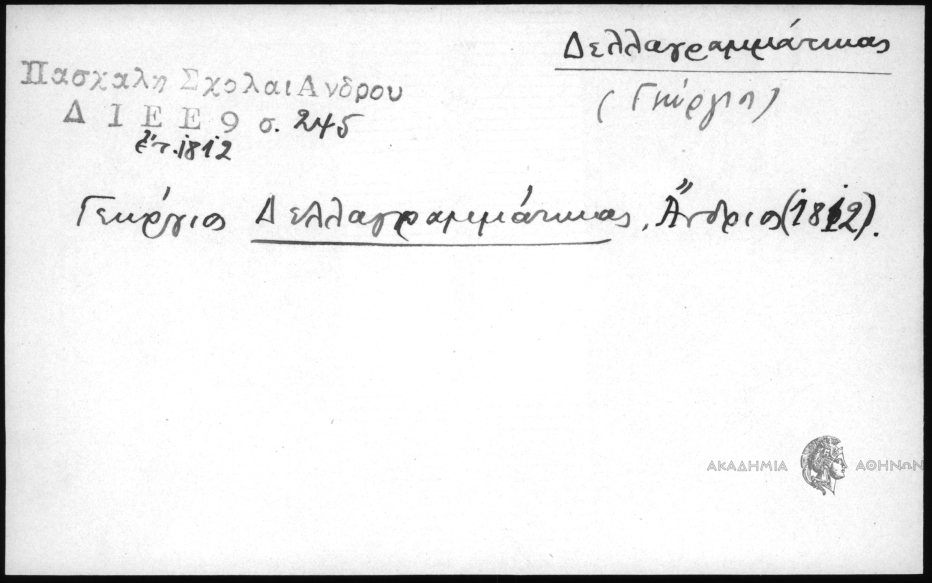 Δελλαγραμμάτικας
(Γεώργιος)
Πασχαλη Σχολαι Ανδρου
Δ Ι Ε Ε 9 σ. 245
ἔτ. 1812
Γεώργιος Δελλαγραμμάτικας, Ἄνδριος (1812).
ΑΚΑΔΗΜΙΑ ΑΘΗΝΩΝ